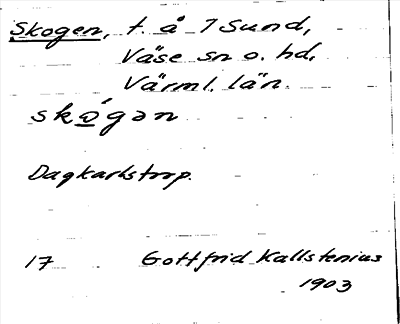 Skogen, t. å 7 Sund,
Väse sn o. hd,
Värml. län.
skógən
Dagkarlstorp.
17 Gottfrid Kallstenius
1903